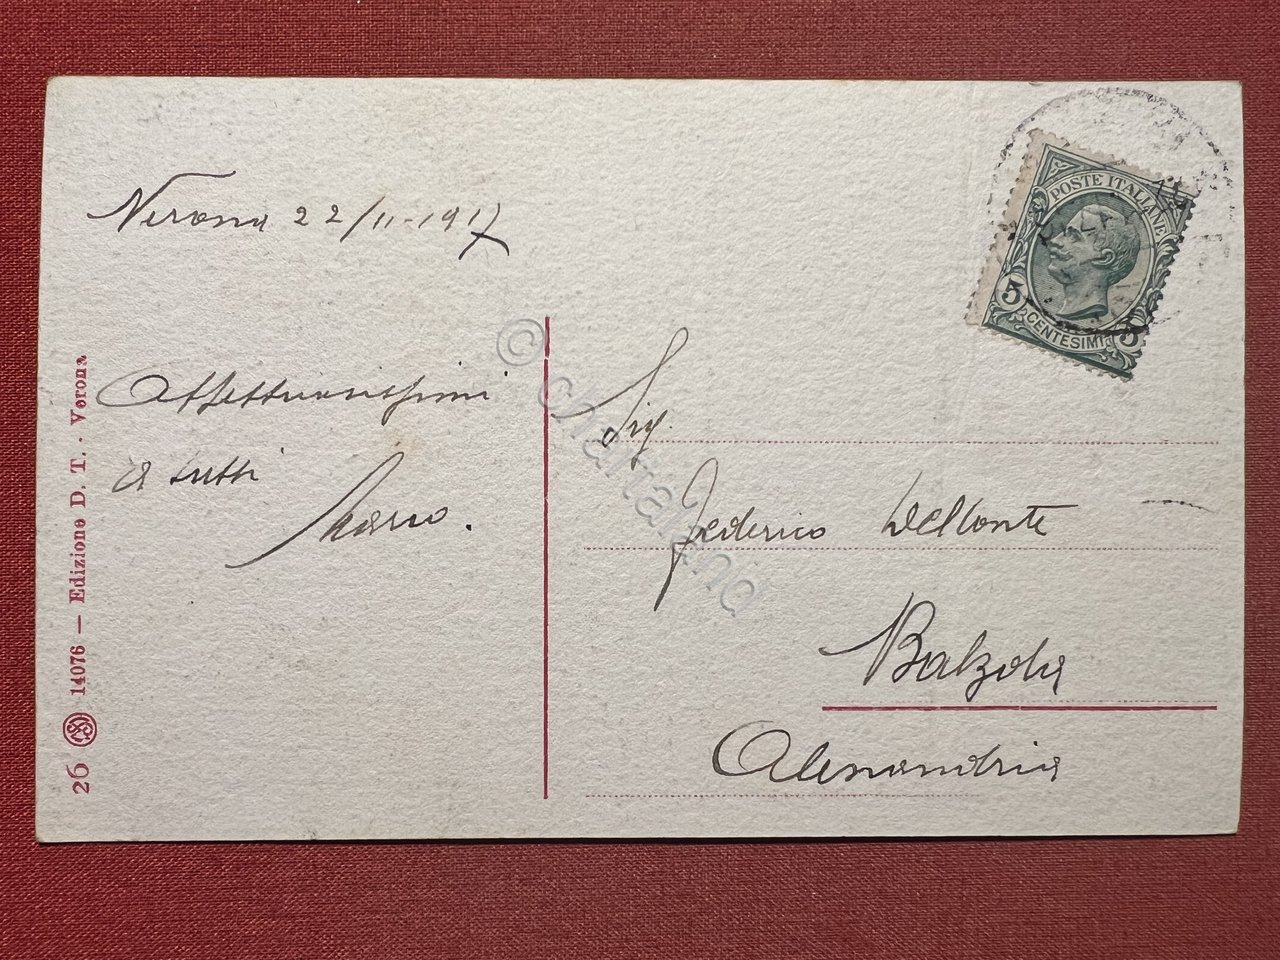 Verona 22/11-1917
Affettuosissimi
a tutti
Mario.
Sig.
Federico Delconte
Balzola
Alessandria
POSTE ITALIANE
5 CENTESIMI 5
26 14076 — Edizione D. T. - Verona
© chartaland